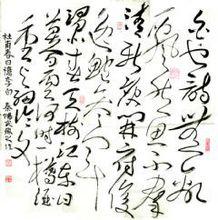 白也詩無敵
飄然思不群
清新庾開府俊
逸鮑參軍渭
北春天樹江東日
暮雲何時一樽酒
重与細論文
杜甫春日憶李白